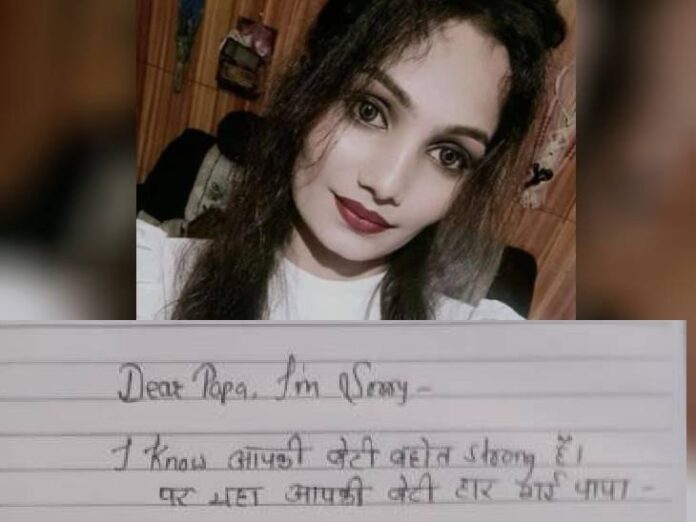 Dear Papa, I'm Sorry -
I know आपकी बेटी बहोत strong है।
पर यहा आपकी बेटी हार गई पापा -